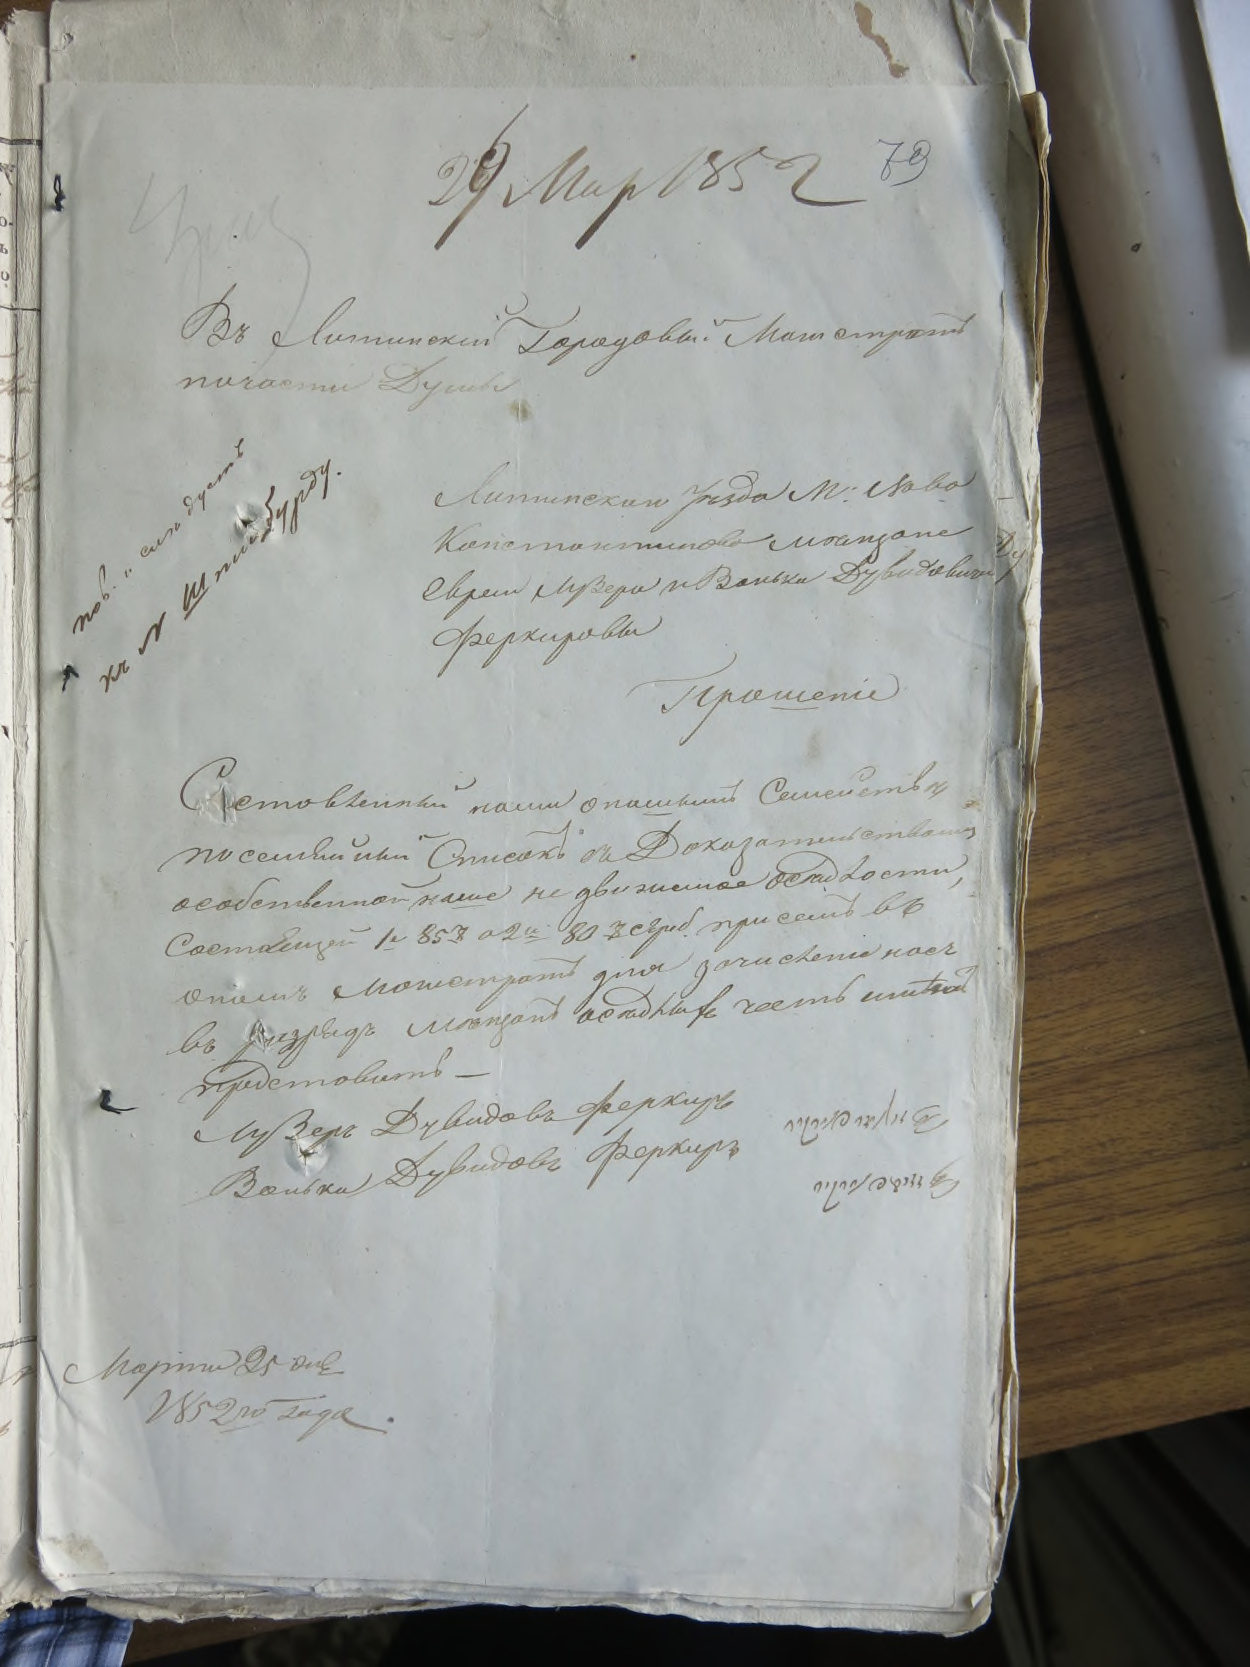 29 Мар 1852
79
Въ Литинскій Городовый Магистратъ
по части Думы
Литинскаго Уезда М: Ново
Константинова мещане
Евреи Лузеръ и Волько Дувидовичи
Феркировы
Прошеніе
Составленный нами о нашемъ Семействѣ
посемейный Списокъ съ Доказательствами
особственной наше недвижимое оседлости,
Состоящей 1й 857 а 2й 807 сереб. при семъ въ
оный Магистратъ для зачисленія насъ
въ разрядъ Мещанъ оседлыхъ честь имеемъ
представить —
Лузеръ Дувидовъ Феркиръ
Волько Дувидовъ Феркиръ
Марта 25 дня
1852го года.